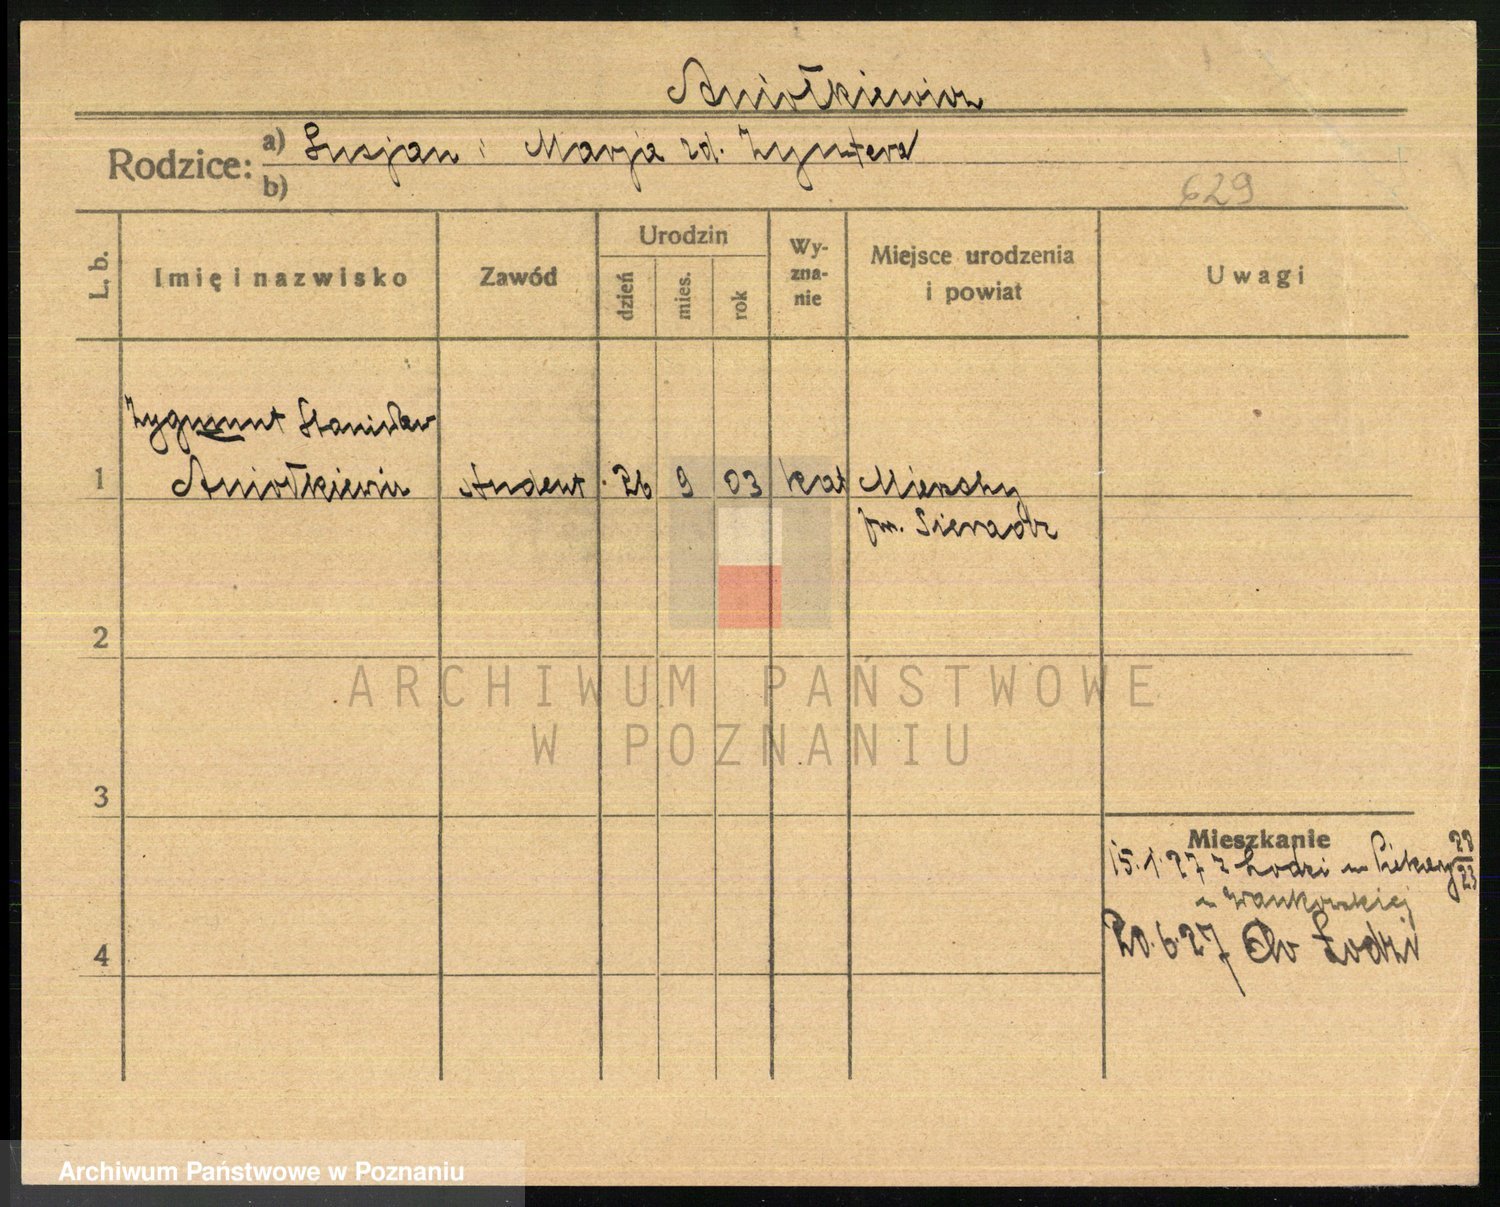 Aniołkiewicz
Rodzice: a) Lucjan i Marja zd. Zyntera
b)
629
L. b.
Imię i nazwisko
Zawód
Urodzin
dzień
mies.
rok
Wy-
zna-
nie
Miejsce urodzenia
i powiat
Uwagi
Zygmunt Stanisław
1 Aniołkiewicz student 26 9 03 kat
pow. Sieradz
2
3
4
Mieszkanie
15.1.27 z Łodzi Piekary 22/23
20.6.27 do Łodzi
ARCHIWUM PAŃSTWOWE
W POZNANIU
Archiwum Państwowe w Poznaniu